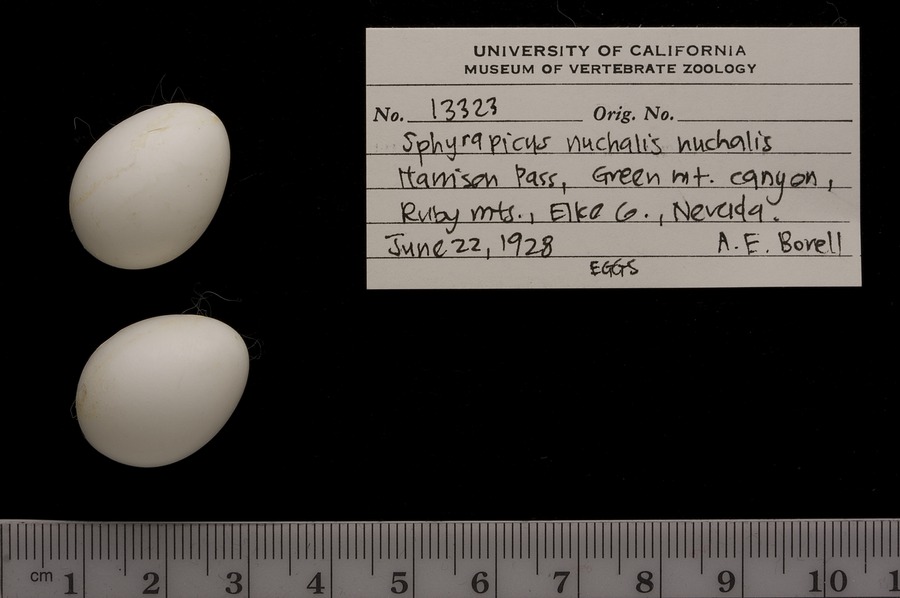 UNIVERSITY OF CALIFORNIA
MUSEUM OF VERTEBRATE ZOOLOGY
No. 13323 Orig. No.
Sphyrapicus nuchalis nuchalis
Harrison Pass, Green mt. canyon,
Ruby mts., Elko Co., Nevada.
June 22, 1928 A. E. Borell
EGGS
cm 1 2 3 4 5 6 7 8 9 10 1